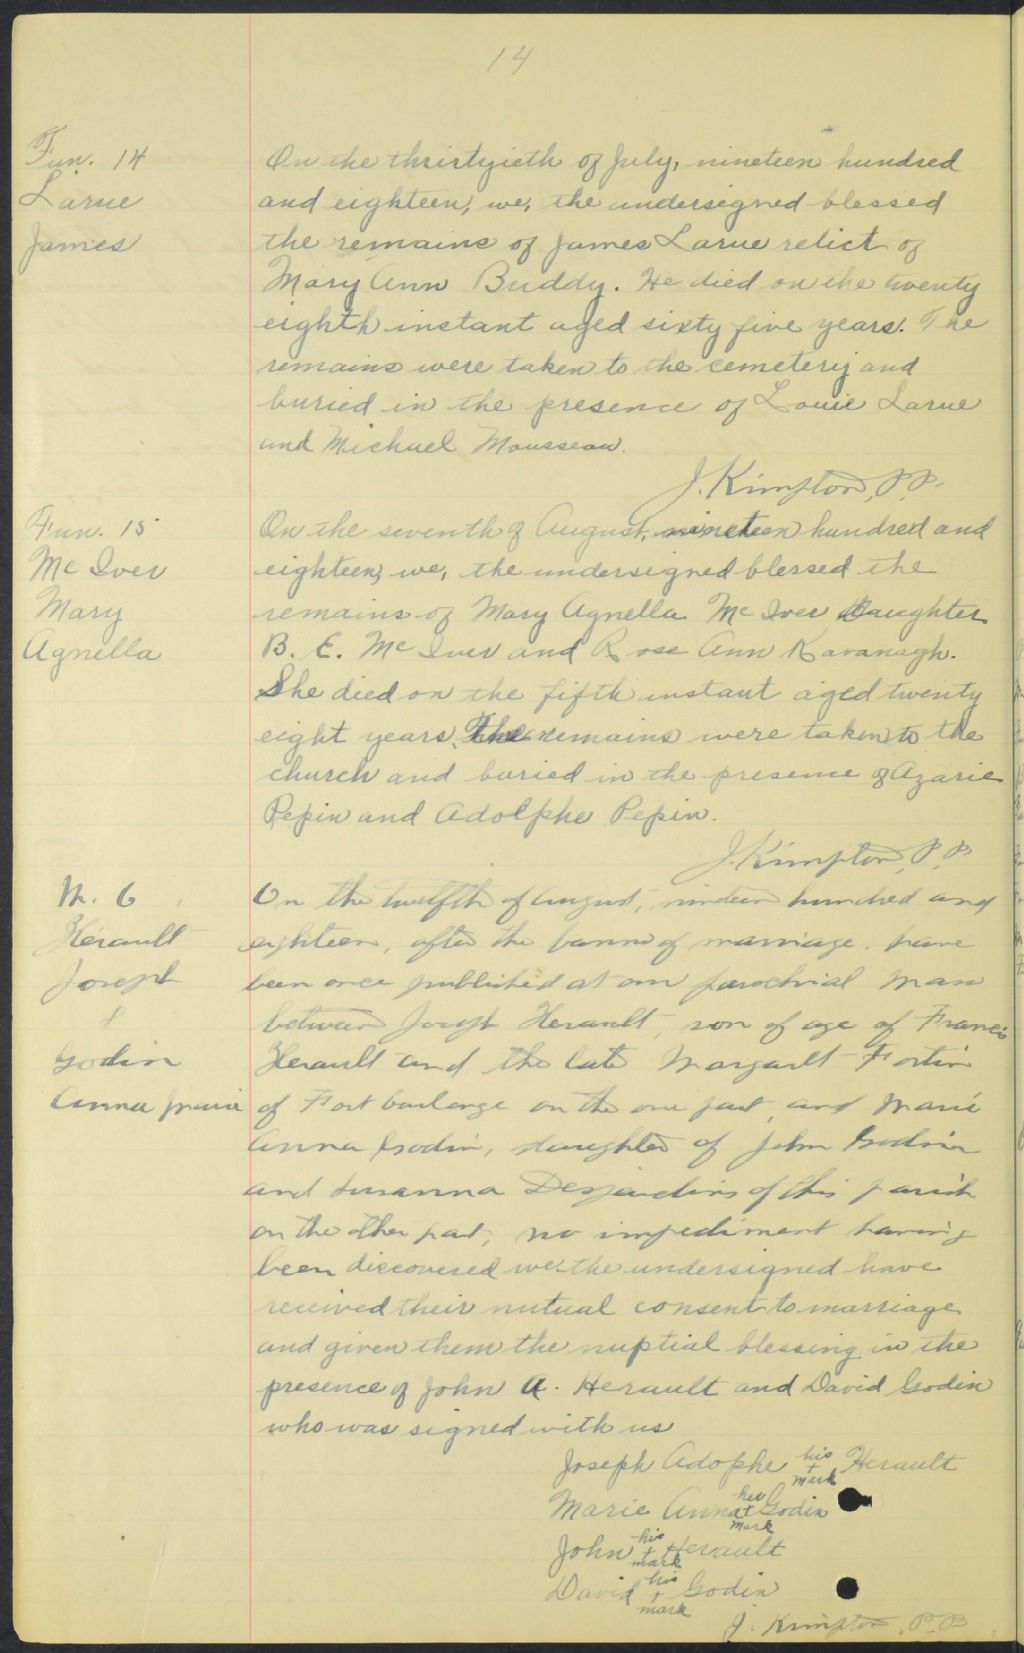 14
Fun. 14
Larue
James
On the thirtyieth of July, nineteen hundred
and eighteen, we, the undersigned blessed
the remains of James Larue relict of
Mary Ann Buddy. He died on the twenty
eighth instant aged sixty five years. The
remains were taken to the cemetery and
buried in the presence of Louie Larue
and Michael Mousseau.
J. Kimpton, P.P.
Fun. 15
McIver
Mary
Agnella
On the seventh of August, nineteen hundred and
eighteen, we, the undersigned blessed the
remains of Mary Agnella McIver Daughter
B. E. McIver and Rose Ann Kavanagh.
She died on the fifth instant aged twenty
eight years. The remains were taken to the
church and buried in the presence of Azarie
Pepin and Adolphe Pepin.
J. Kimpton, P.P.
M. 6
Hérault
Joseph
&
Godin
Anna Marie
On the twelfth of August, nineteen hundred and
eighteen, after the banns of marriage have
been once published at our parochial Mass
between Joseph Herault, son of age of Francis
Herault and the late Margaret Fortin
of Fort Coulonge on the one part, and Marie
Anna Godin, daughter of John Godin
and Susanna Desjardins of this parish
on the other part, no impediment having
been discovered we the undersigned have
received their mutual consent to marriage
and given them the nuptial blessing in the
presence of John A. Herault and David Godin
who was signed with us
Joseph Adophe his + mark Herault
Marie Anna her + mark Godin
John his + mark Herault
David his + mark Godin
J. Kimpton, P.P.